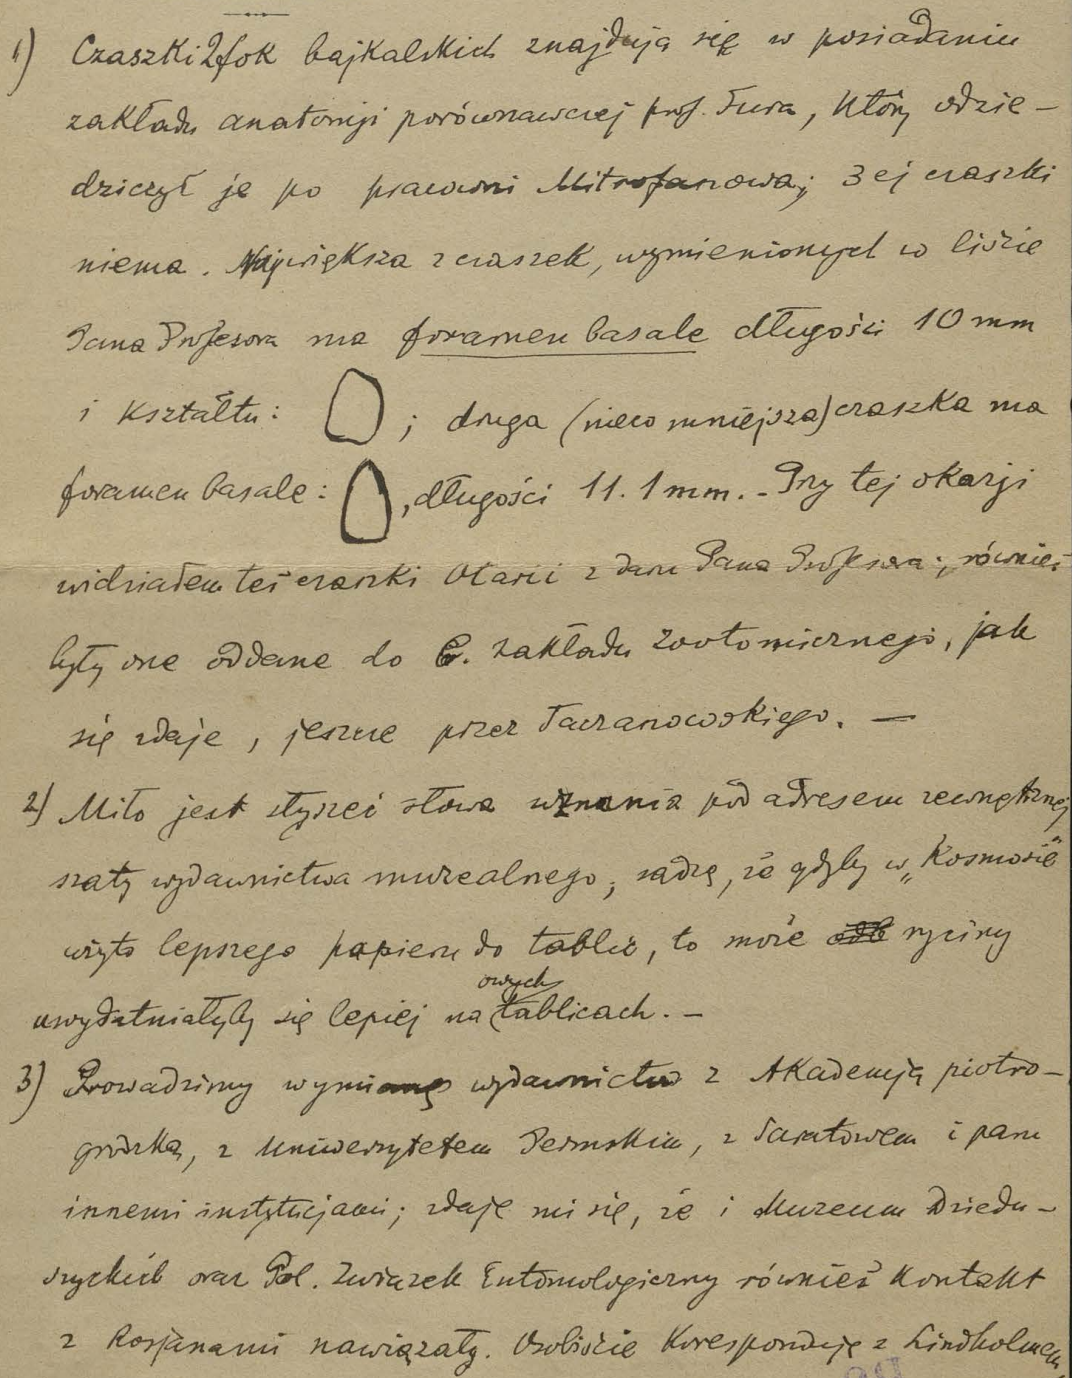 1) Czaszki 2 fok bajkalskich znajdują się w posiadaniu
zakładu anatomji porównawczej prof. Tura, który odzie-
dziczył je po pracowni Mitrofanowa; 3ej czaszki
niema. Największa z czaszek, wymienionych w liście
Pana Profesora ma foramen basale długości 10 mm
i kształtu: ; druga (nieco mniejsza) czaszka ma
foramen basale: , długości 11.1 mm. - Przy tej okazji
widziałem też czaszki Otarii z daru Pana Profesora; również
były one oddane do b. zakładu zootomicznego, jak
się zdaje, jeszcze przez Taczanowskiego. —
2) Miło jest słyszeć słowa uznania pod adresem zewnętrznej
szaty wydawnictwa muzealnego; sądzę, że gdyby w „Kosmosie"
użyto lepszego papieru do tablic, to może ryciny
uwydatniałyby się lepiej na owych tablicach. -
3) Prowadzimy wymianę wydawnictw z Akademją piotro-
grodzką, z Uniwersytetem Permskim, z Saratowem i paru
innemi instytucjami; zdaje mi się, że i Muzeum Dziedu-
szyckich oraz Pol. Związek Entomologiczny również kontakt
z Rosjanami nawiązały. Osobiście koresponduję z Lindholmem,